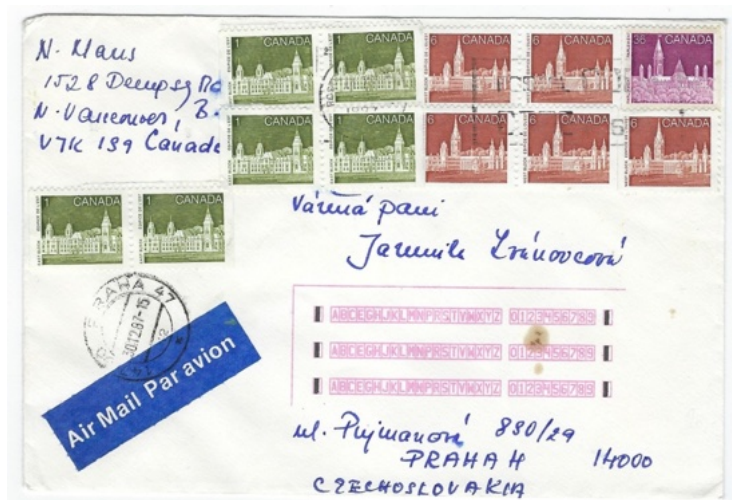 N. Maus
1528 Dempsey
N. Vancouver, B.
V7K 1S9 Canada
1 CANADA
1 CANADA
6 CANADA
6 CANADA
36 CANADA
1 CANADA
1 CANADA
6 CANADA
6 CANADA
6 CANADA
1 CANADA
1 CANADA
Vážená paní
Jarmila
PRAHA 47
30.12.87-15
Air Mail Par avion
ABCEGHJKLMNPRSTVWXYZ 0123456789
ABCEGHJKLMNPRSTVWXYZ 0123456789
ABCEGHJKLMNPRSTVWXYZ 0123456789
ul. Pujmanové 890/29
PRAHA 4 14000
CZECHOSLOVAKIA